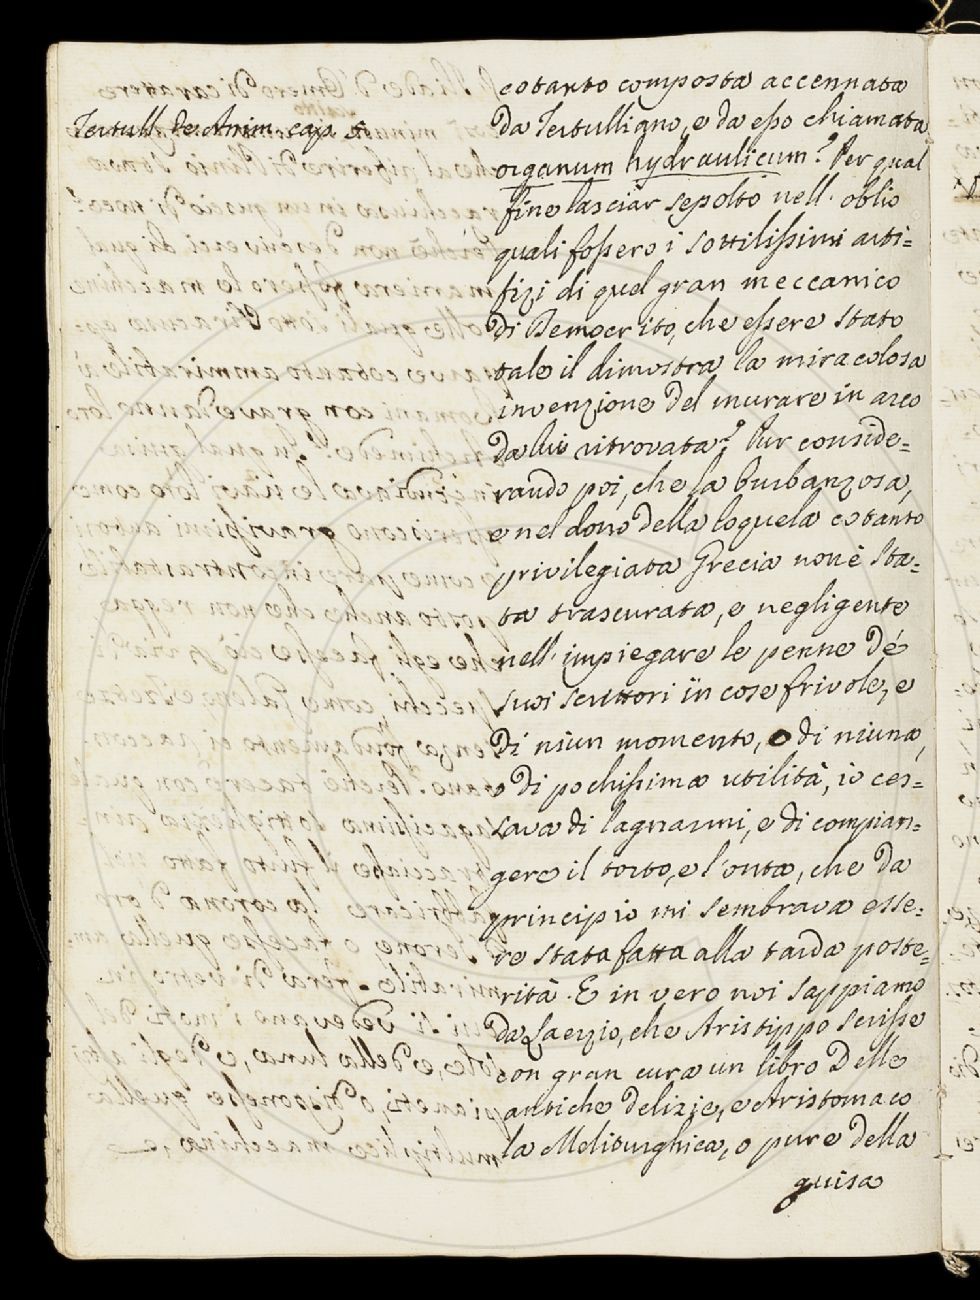 Tertull. de Anim. cap.
cotanto composta accennata
da Tertulliano, e da esso chiamata
organum hydraulicum? Per qual
fine lasciar sepolto nell' oblio
quali fossero i sottilissimi arti=
fizi di quel gran meccanico
di Democrito, che essere stato
tale il dimostra la miracolosa
invenzione del murare in arco
da lui ritrovata? Pur conside=
rando poi, che la burbanzosa,
e nel dono della loquela cotanto
privilegiata Grecia non è sta=
ta trascurata, e negligente
nell' impiegare le penne de'
suoi scrittori in cose frivole, e
di niun momento, o di niuna,
o di pochissima utilità, io ces=
sava di lagnarmi, e di compian=
gere il torto, e l'onta, che da
principio mi sembrava esse=
re stata fatta alla tarda poste=
rità. E in vero noi sappiamo
da Laerzio, che Aristippo scrisse
con gran cura un libro Delle
antiche delizie, e Aristomaco
la Meliturghica, o pure della
guisa